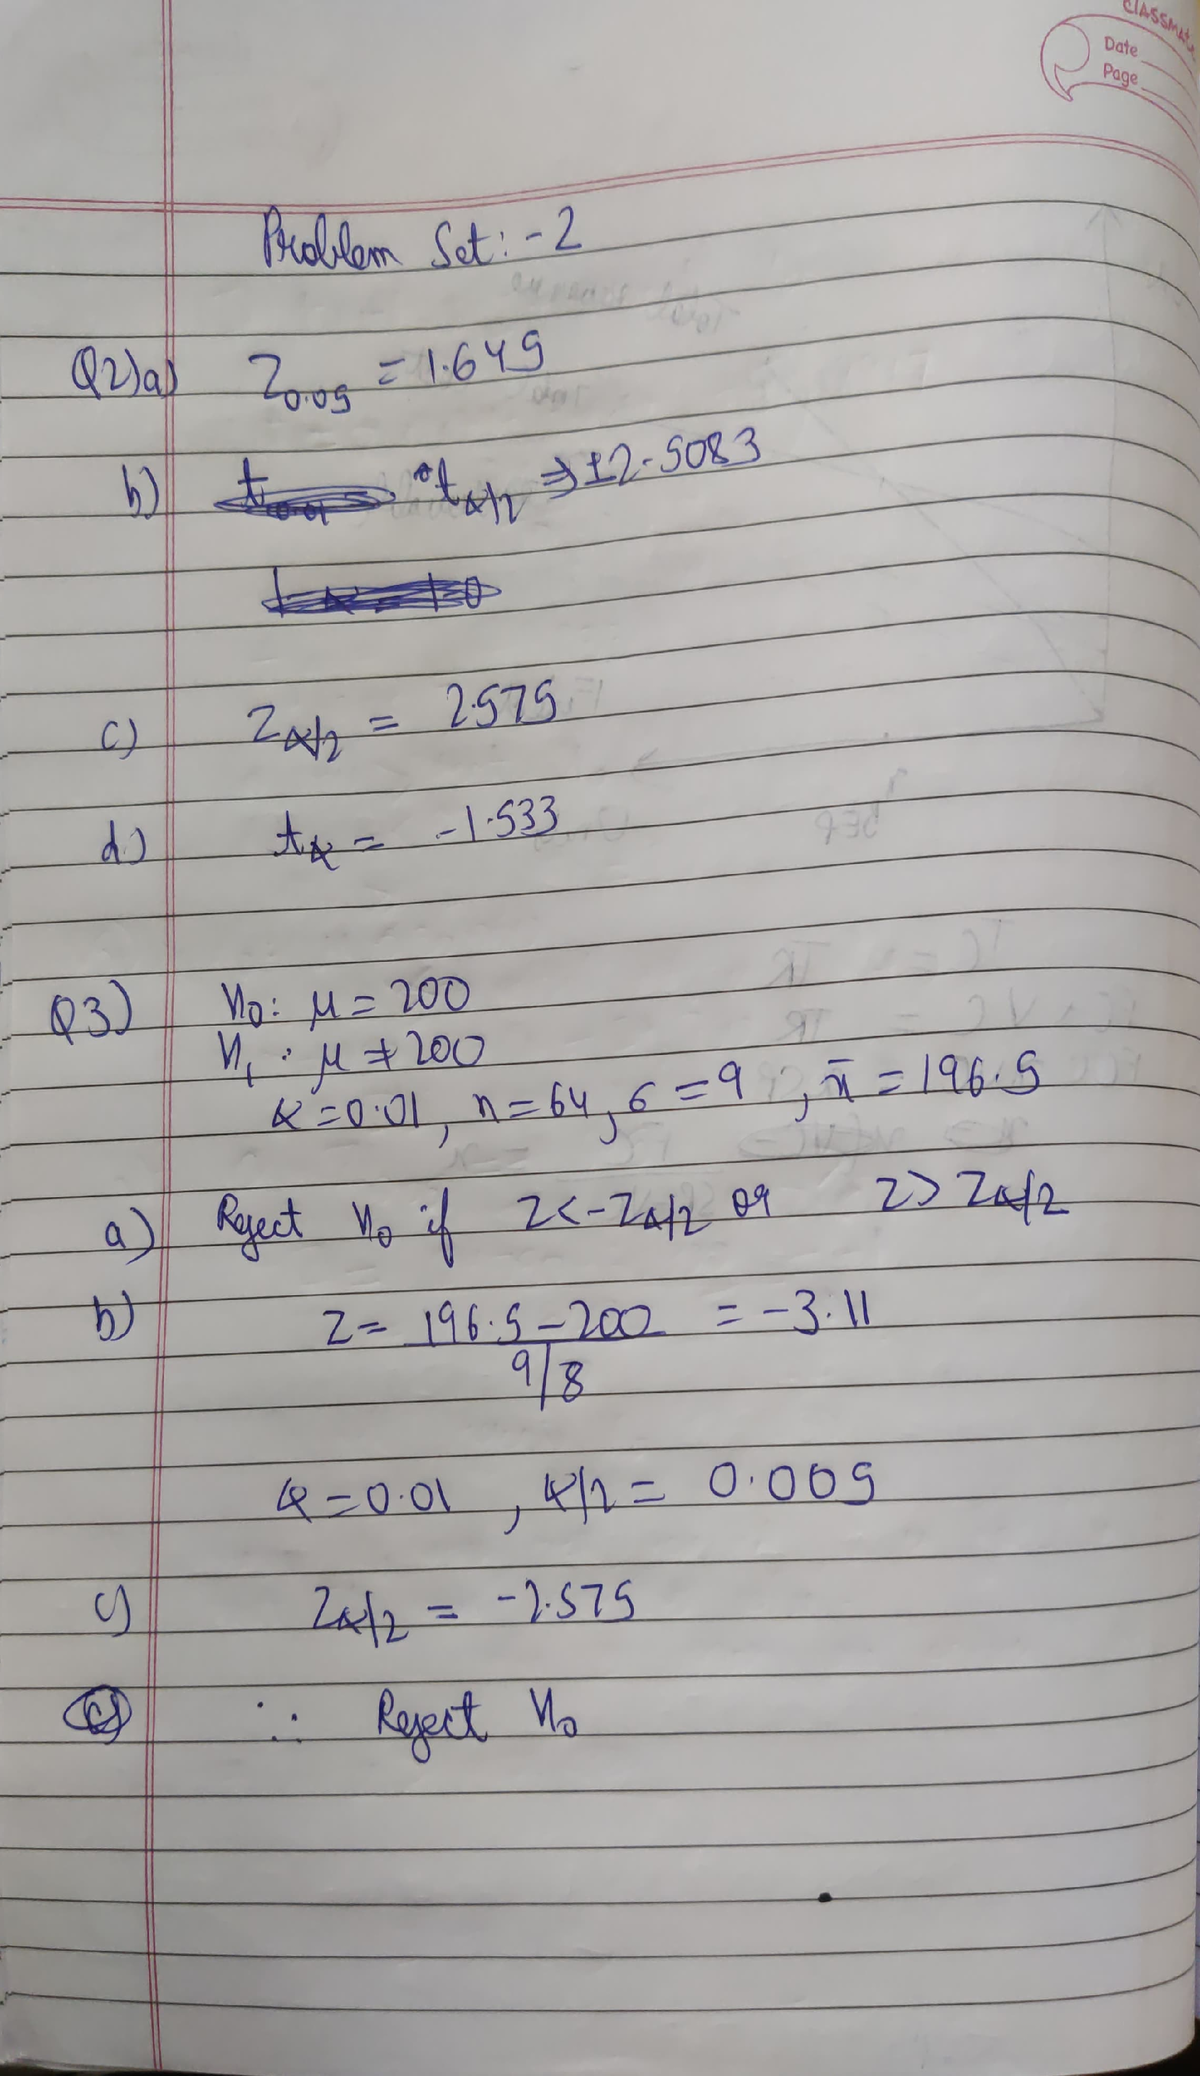 classmate
Date
Page
Problem Set:-2
Q2)a) Z0.05 = 1.645
b) tα/2 ⇒ ±2.5083
c) Zα/2 = 2.575
d) tα = -1.533
Q3) H0: μ = 200
H1: μ ≠ 200
α = 0.01, n = 64, σ = 9, x̄ = 196.5
a) Reject H0 if Z < -Zα/2 or Z > Zα/2
b) Z = 196.5 - 200 = -3.11
9/8
α = 0.01, α/2 = 0.005
c) Zα/2 = -2.575
∴ Reject H0